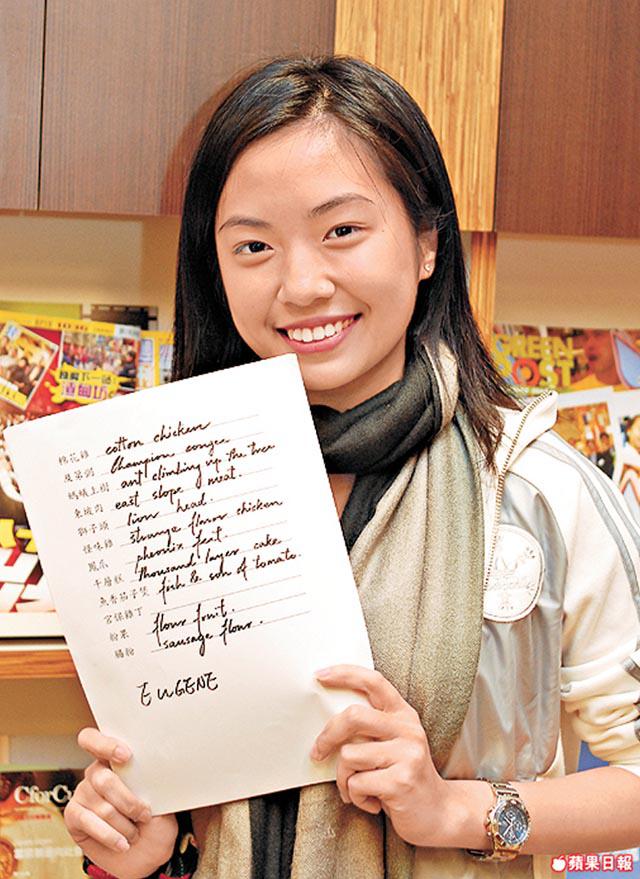 棉花雞 cotton chicken
及第粥 Champion congee
螞蟻上樹 ant climbing up the tree
東坡肉 east slope meat.
獅子頭 lion head.
怪味雞 strange flavor chicken
鳳爪 pheonix feet.
千層糕 thousand layer cake
魚香茄子煲 fish & son of tomato.
宮保雞丁
粉果 flour fruit.
腸粉 sausage flour.
EUGENE
GREEN
POST
CforCu
蘋果日報